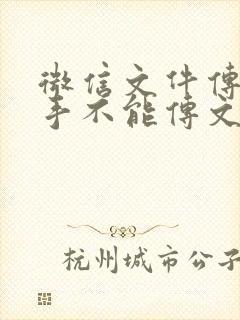 微信文件傳
手不能傳文
杭州城市公子